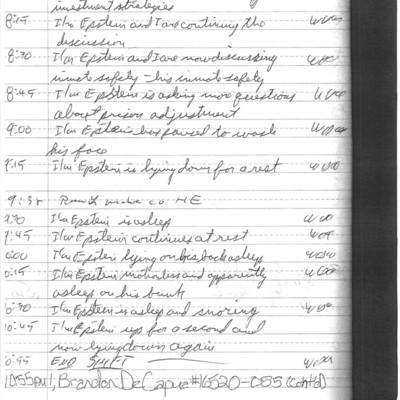 investment strategies
8:15 I/m Epstein and I are continuing the
discussion
8:30 I/m Epstein and I are now discussing
inmate safety - his inmate safety
8:45 I/m Epstein is asking more questions
about prison adjustment
9:00 I/m Epstein has paused to wash
his face
9:15 I/m Epstein is lying down for a rest
9:38 Round made CO NE
9:30 I/m Epstein is asleep
9:45 I/m Epstein continues at rest
0:00 I/m Epstein lying on his back asleep
0:15 I/m Epstein motionless and apparently
asleep on his bunk
0:30 I/m Epstein is asleep and snoring
0:45 I/m Epstein up for a second and
now lying down again
0:55 END SHIFT
10:55pm I, Brandon DeCapua #16520-055 (Cont'd)